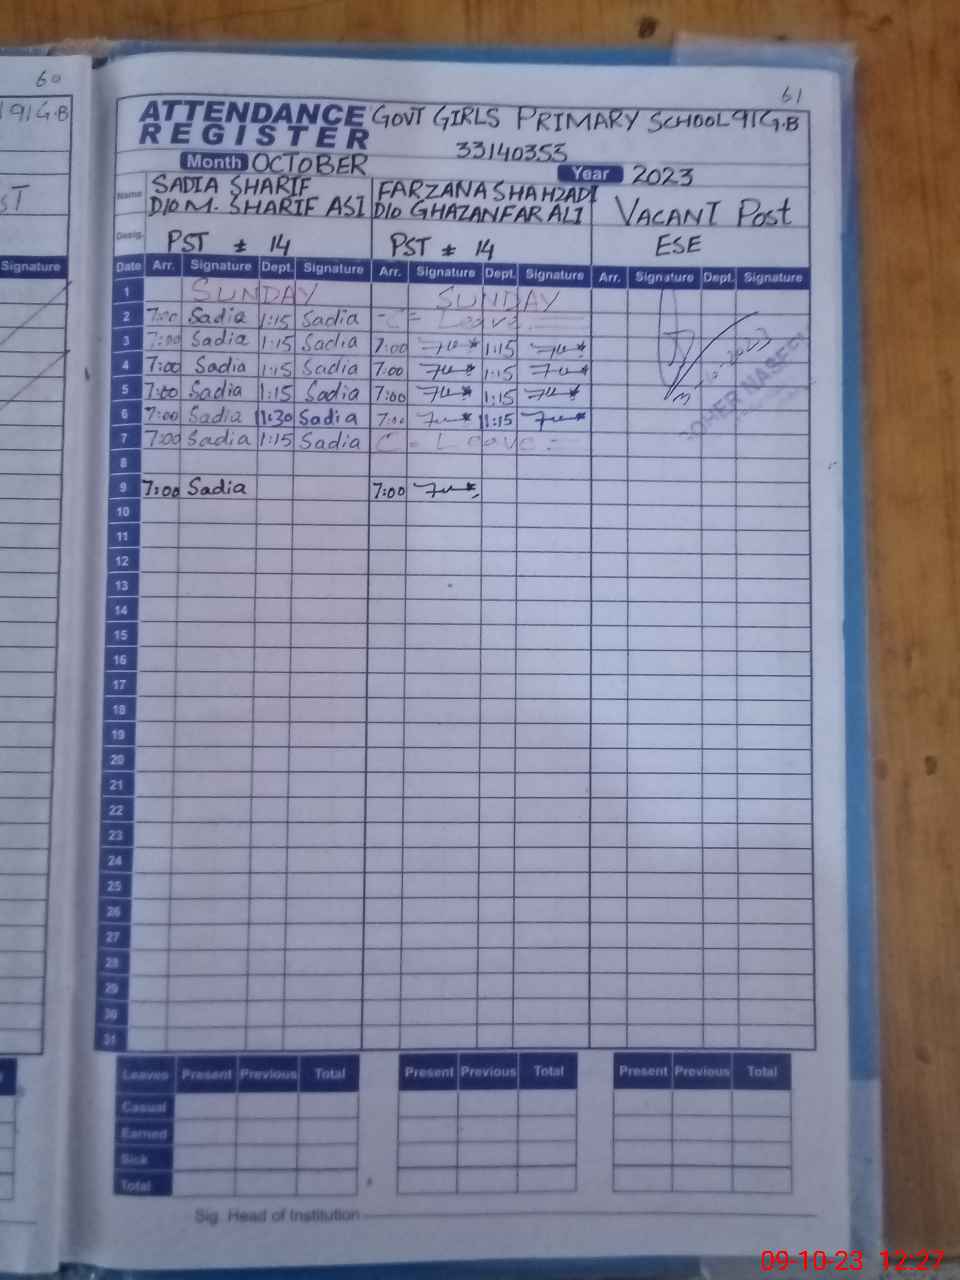 60
191G.B
ST
Signature
61
ATTENDANCE REGISTER GOVT GIRLS PRIMARY SCHOOL 91G.B
33140353
Month OCTOBER Year 2023
Name SADIA SHARIF FARZANA SHAHZADI VACANT Post
D/O M. SHARIF ASI D/O GHAZANFAR ALI
Desig. PST # 14 PST # 14 ESE
Date Arr. Signature Dept. Signature Arr. Signature Dept. Signature Arr. Signature Dept. Signature
1 SUNDAY SUNDAY
2 7:00 Sadia 1:15 Sadia -C= Leave
3 7:00 Sadia 1:15 Sadia 7:00 1:15
4 7:00 Sadia 1:15 Sadia 7:00 1:15
5 7:00 Sadia 1:15 Sadia 7:00 1:15
6 7:00 Sadia 11:30 Sadia 7:00 11:15
7 7:00 Sadia 1:15 Sadia C- Leave-
8
9 7:00 Sadia 7:00
10
11
12
13
14
15
16
17
18
19
20
21
22
23
24
25
26
27
28
29
30
31
Leaves Present Previous Total Present Previous Total Present Previous Total
Casual
Earned
Sick
Total
Sig. Head of Institution
09-10-23 12:27